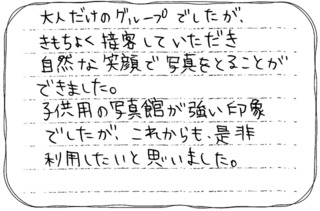 大人だけのグループでしたが、
きもちよく接客していただき
自然な笑顔で写真をとることが
できました。
子供用の写真館が強い印象
でしたが、これからも、是非
利用したいと思いました。